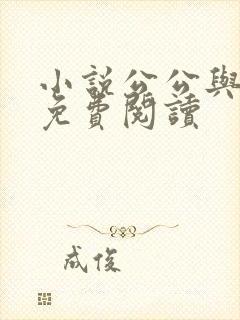 小說公公與
免費閱讀
成俊